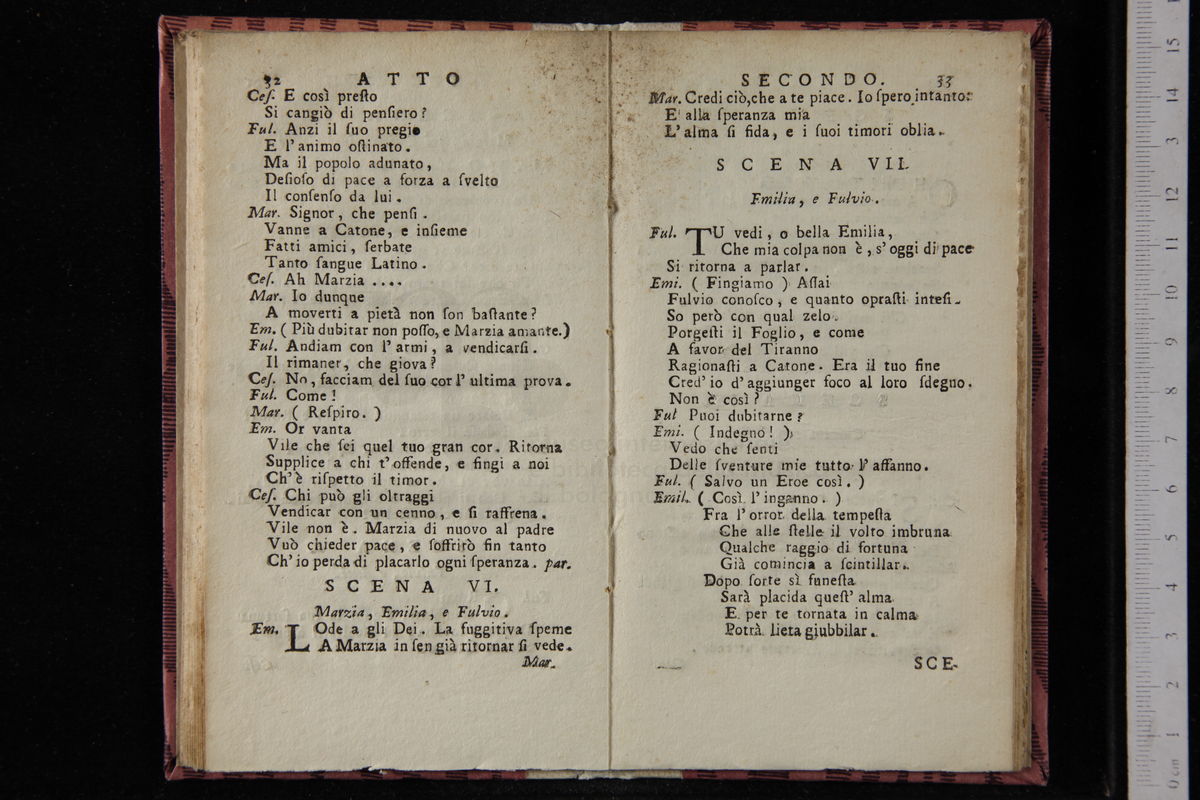 32 ATTO
Ceſ. E così preſto
Si cangiò di penſiero?
Ful. Anzi il ſuo pregio
E l'animo oſtinato.
Ma il popolo adunato,
Deſioſo di pace a forza a ſvelto
Il conſenſo da lui.
Mar. Signor, che penſi.
Vanne a Catone, e inſieme
Fatti amici, ſerbate
Tanto ſangue Latino.
Ceſ. Ah Marzia ....
Mar. Io dunque
A moverti a pietà non ſon baſtante?
Em. (Più dubitar non poſſo, e Marzia amante.)
Ful. Andiam con l'armi, a vendicarſi.
Il rimaner, che giova?
Ceſ. No, facciam del ſuo cor l'ultima prova.
Ful. Come!
Mar. (Reſpiro.)
Em. Or vanta
Vile che ſei quel tuo gran cor. Ritorna
Supplice a chi t'offende, e fingi a noi
Ch'è riſpetto il timor.
Ceſ. Chi può gli oltraggi
Vendicar con un cenno, e ſi raffrena.
Vile non è. Marzia di nuovo al padre
Vuò chieder pace, e ſoffrirò fin tanto
Ch'io perda di placarlo ogni ſperanza. par.
SCENA VI.
Marzia, Emilia, e Fulvio.
Em. LOde a gli Dei. La fuggitiva ſpeme
A Marzia in ſen già ritornar ſi vede.
Mar.
SECONDO. 33
Mar. Credi ciò, che a te piace. Io ſpero intanto:
E' alla ſperanza mia
L'alma ſi fida, e i ſuoi timori oblia.
SCENA VII.
Emilia, e Fulvio.
Ful. TU vedi, o bella Emilia,
Che mia colpa non è, s'oggi di pace
Si ritorna a parlar.
Emi. (Fingiamo) Aſſai
Fulvio conoſco, e quanto opraſti inteſi.
So però con qual zelo.
Porgeſti il Foglio, e come
A favor del Tiranno
Ragionaſti a Catone. Era il tuo fine
Cred'io d'aggiunger foco al loro ſdegno.
Non è così?
Ful Puoi dubitarne?
Emi. (Indegno!)
Vedo che ſenti
Delle ſventure mie tutto l'affanno.
Ful. (Salvo un Eroe così.)
Emil. (Così l'inganno.)
Fra l'orror della tempeſta
Che alle ſtelle il volto imbruna
Qualche raggio di fortuna
Già comincia a ſcintillar.
Dopo ſorte sì funeſta
Sarà placida queſt'alma
E per te tornata in calma
Potrà lieta giubbilar.
SCE-